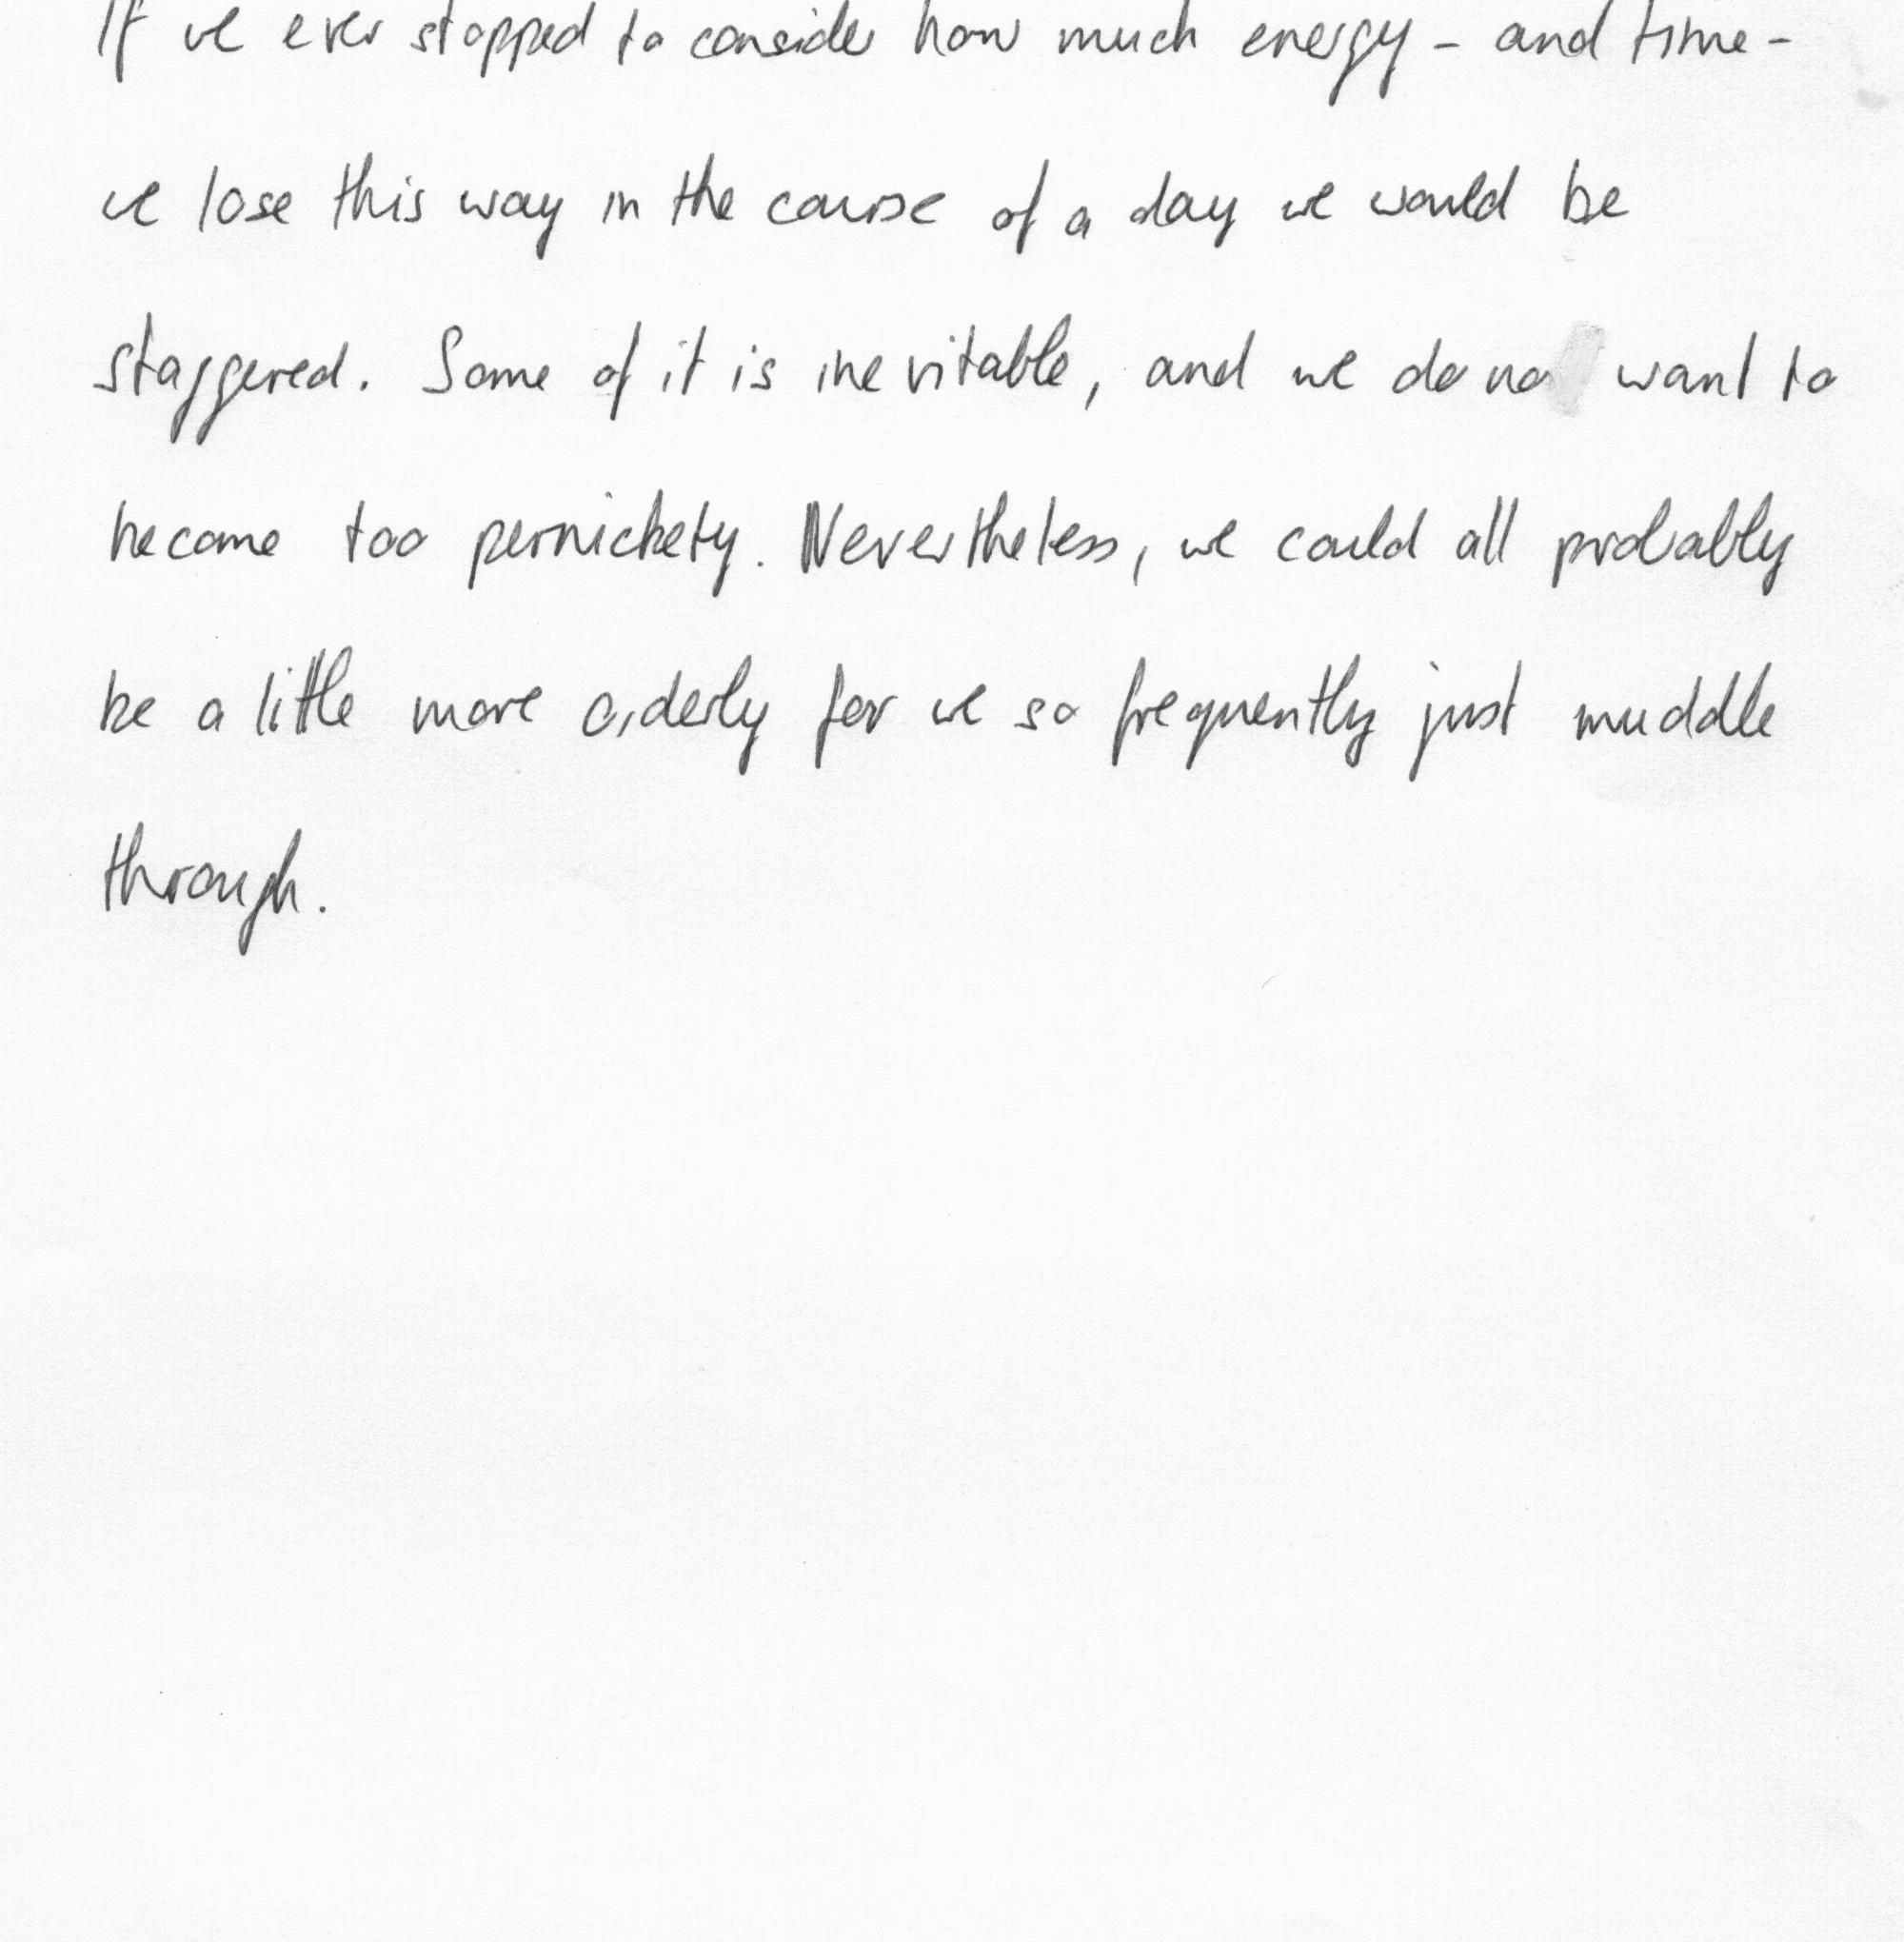 If we ever stopped to consider how much energy - and time -
we lose this way in the course of a day we would be
staggered. Some of it is inevitable, and we do no want to
become too pernickety. Nevertheless, we could all probably
be a little more orderly for we so frequently just muddle
through.